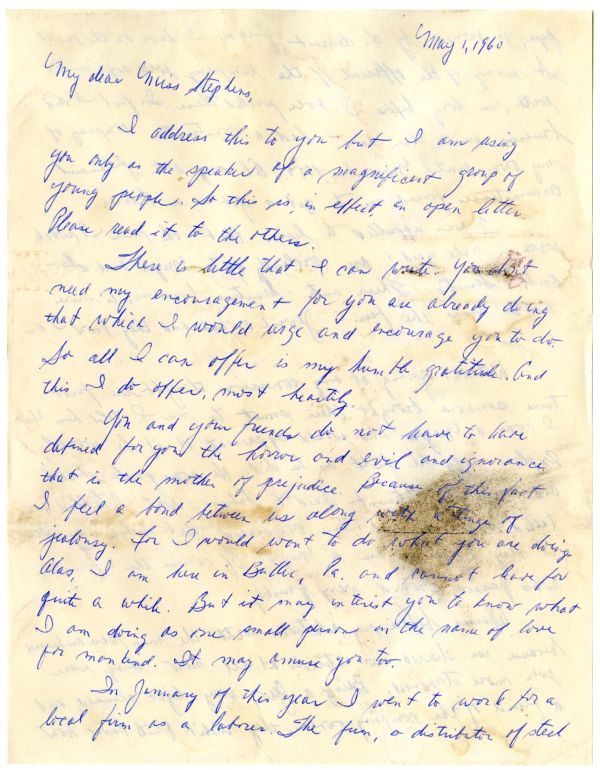 May 1, 1960
My dear Miss Stephens,
I address this to you but I am using
you only as the speaker of a magnificent group of
young people. So this is, in effect, an open letter.
Please read it to the others.
There is little that I can write. You don't
need my encouragement for you are already doing
that which I would urge and encourage you to do.
So all I can offer is my humble gratitude. And
this I do offer, most heartily.
You and your friends do not have to have
defined for you the horror and evil and ignorance
that is the mother of prejudice. Because of this fact
I feel a bond between us along with a tinge of
jealousy. For I would want to do what you are doing.
Alas, I am here in Butler, Pa. and cannot leave for
quite a while. But it may interest you to know what
I am doing as one small person in the name of love
for mankind. It may amuse you too.
In January of this year I went to work for a
local firm as a laborer. The firm, a distributor of steel